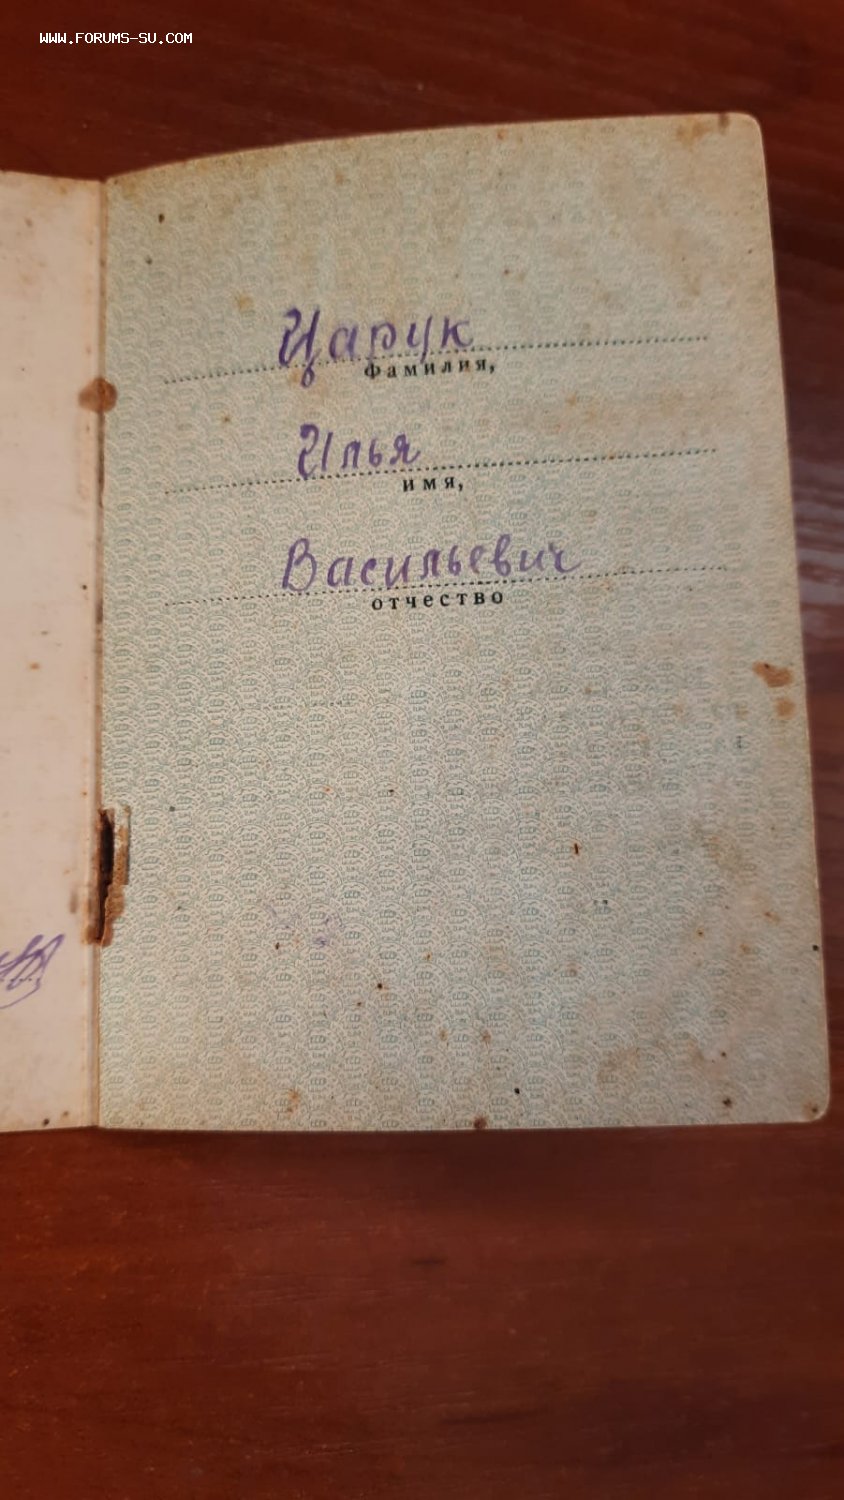 WWW.FORUMS-SU.COM
Царук
фамилия,
Илья
имя,
Васильевич
отчество